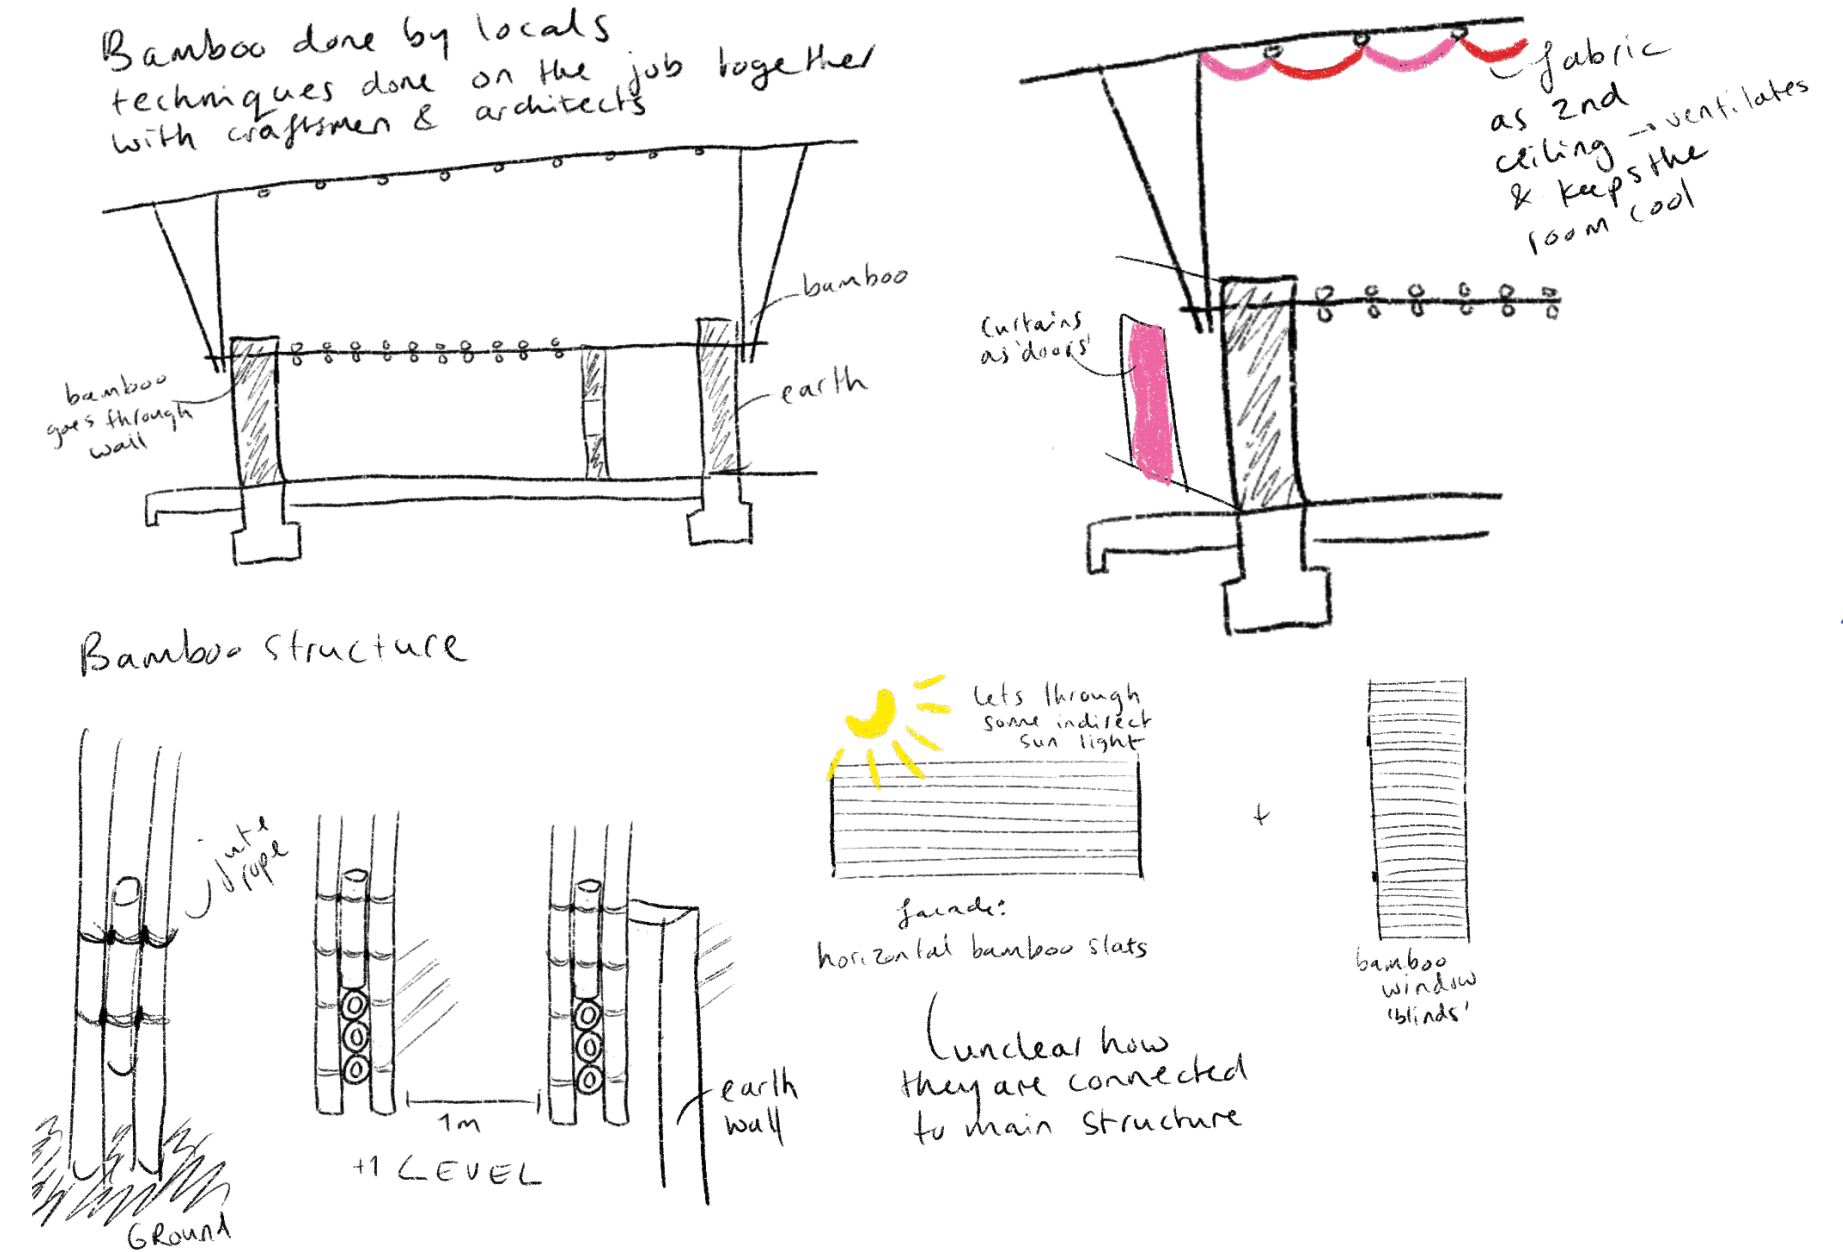 Bamboo done by locals
techniques done on the job together
with craftsmen & architects
fabric
as 2nd
ceiling → ventilates
& keeps the
room cool
bamboo
bamboo
goes through
wall
earth
curtains
as 'doors'
Bamboo structure
jute
rope
GROUND
1m
+1 LEVEL
earth
wall
lets through
some indirect
sun light
facade:
horizontal bamboo slats
+
bamboo
window
'blinds'
unclear how
they are connected
to main structure